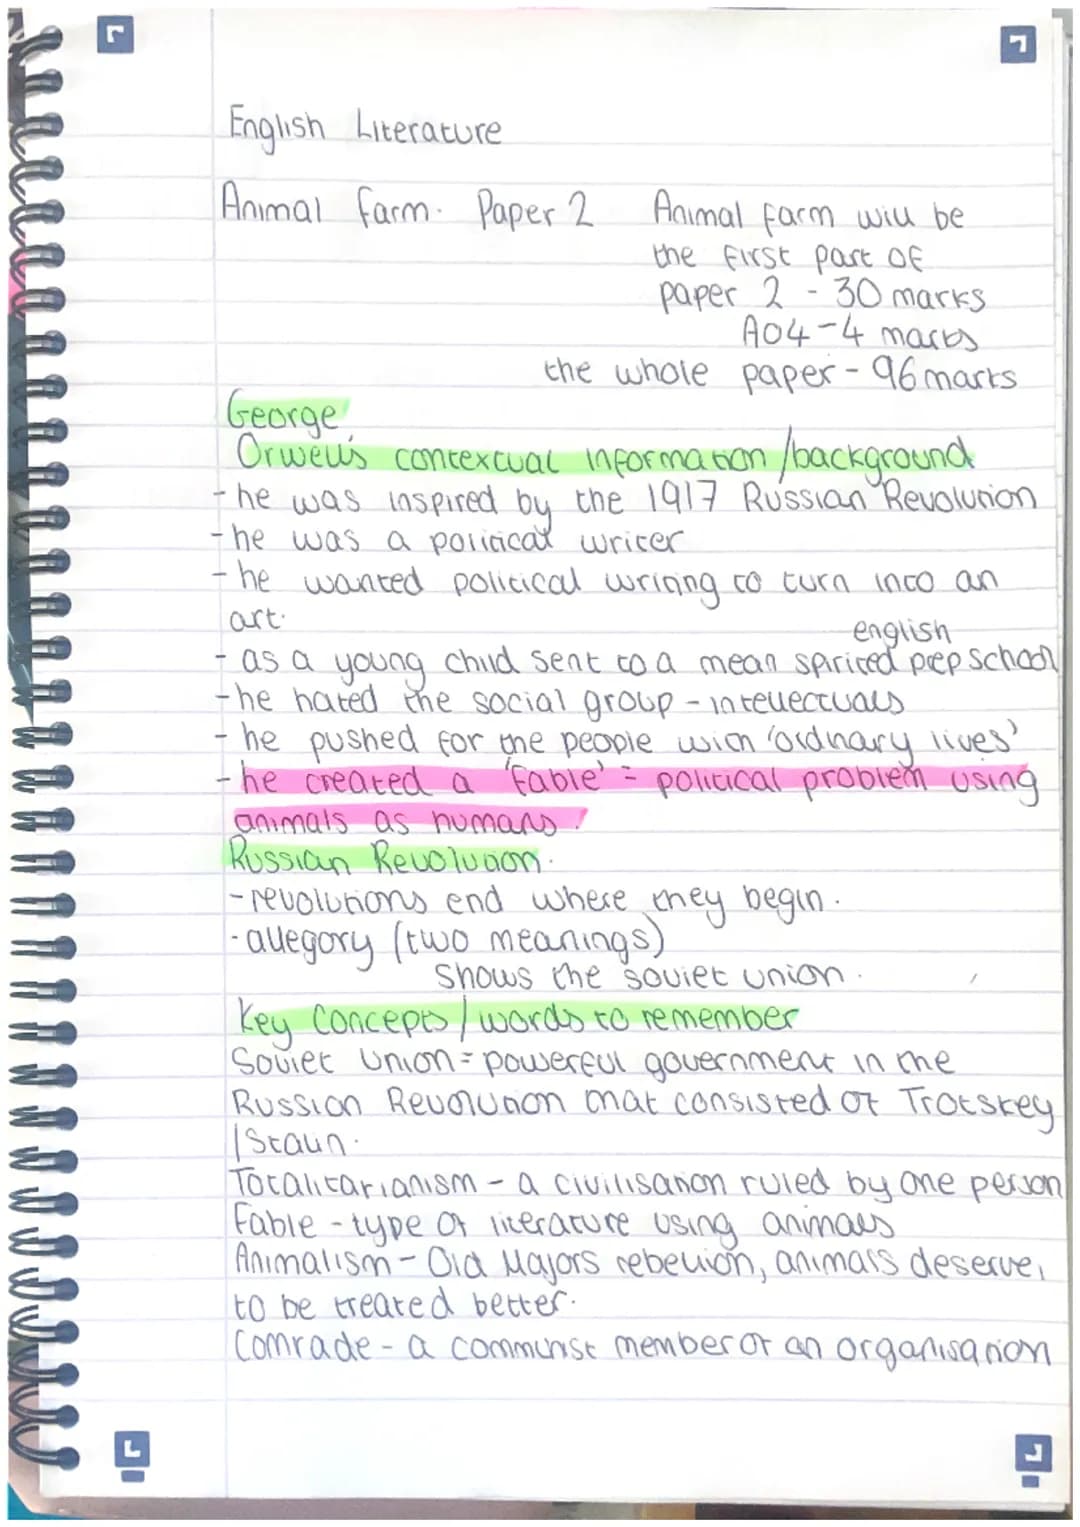 English Literature
Animal farm. Paper 2 Animal farm will be
the first part of
paper 2 - 30 marks
AO4 - 4 marks
the whole paper - 96 marks
George
Orwell's contextual information / background
- he was inspired by the 1917 Russian Revolution
- he was a political writer
- he wanted political writing to turn into an
art.
english
- as a young child sent to a mean spirited prep school
- he hated the social group - intellectuals
- he pushed for the people with 'ordnary lives'
- he created a 'fable' = political problem using
animals as humans.
Russian Revolution.
- revolutions end where they begin.
- allegory (two meanings)
shows the soviet union.
Key Concepts / words to remember
Soviet Union = powerful government in the
Russion Revolution that consisted of Trotskey
/ Stalin.
Totalitarianism - a civilisation ruled by one person
Fable - type of literature using animals
Animalism - Old Majors rebellion, animals deserve,
to be treated better.
Comrade - a communist member of an organisation